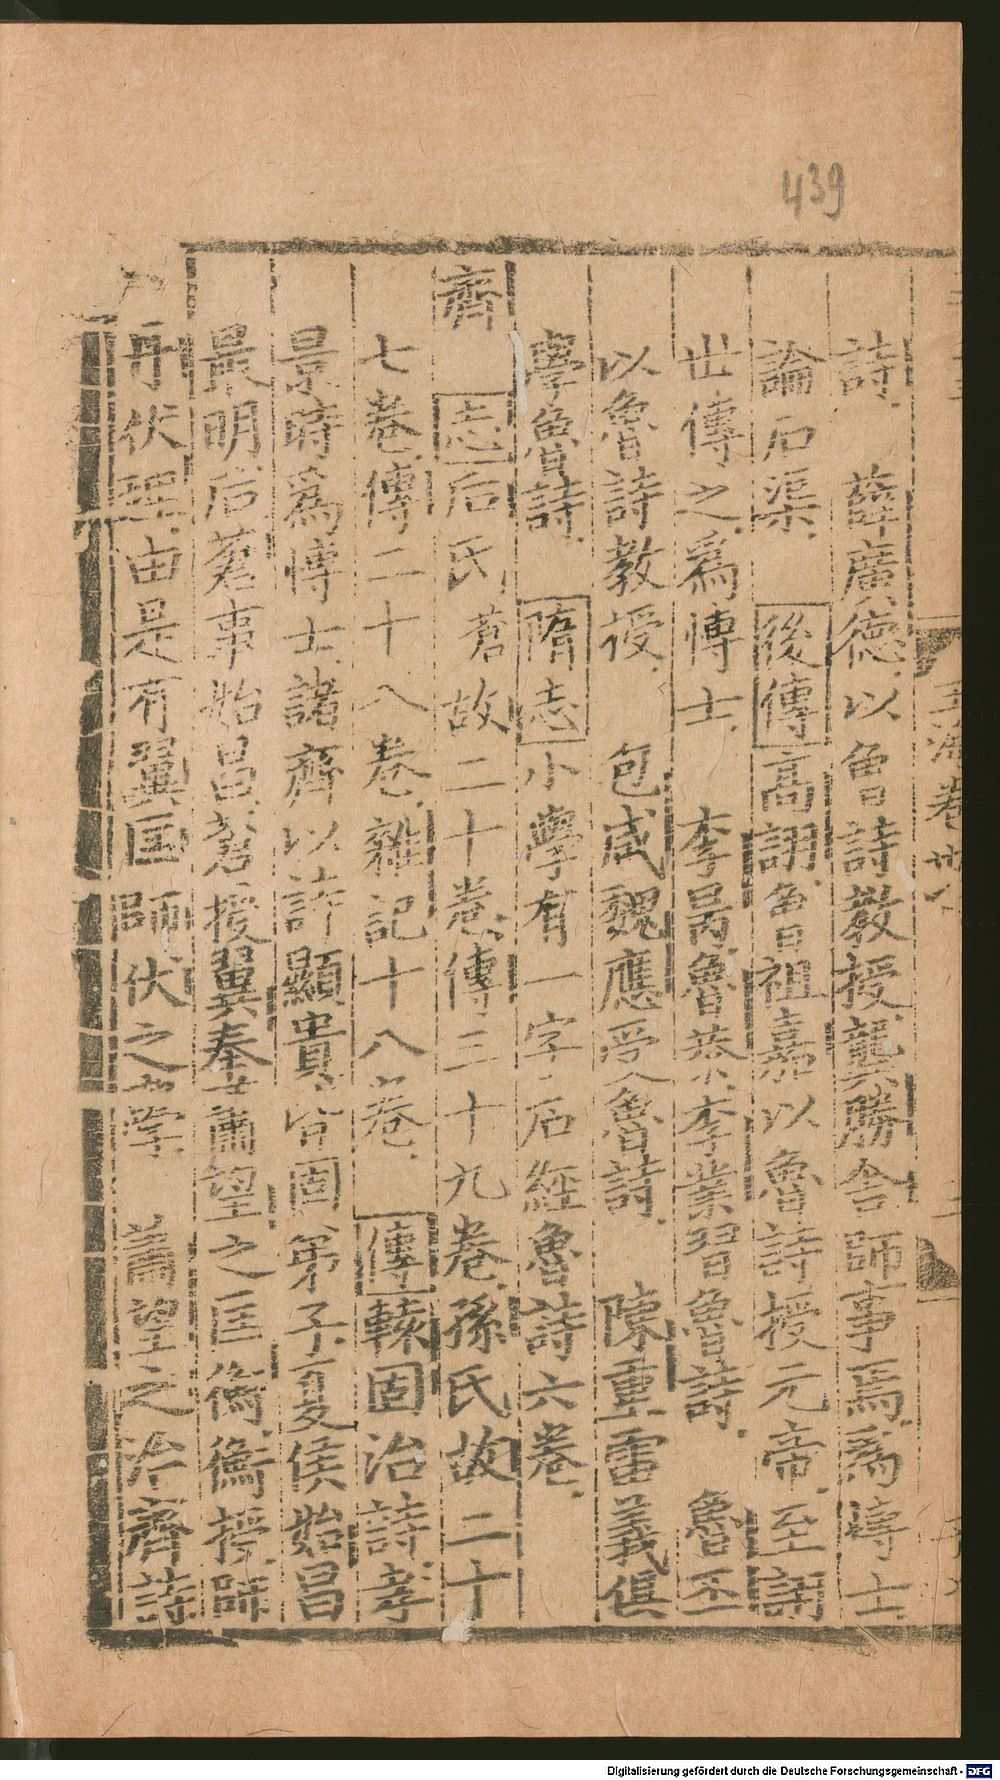 439
玉海卷卅八
詩 薛廣德以魯詩教授龔勝舍師事焉爲博士
論石渠 後傳高詡魯祖嘉以魯詩授元帝至詡
世傳之爲博士 李昺魯恭李業習魯詩 魯丕
以魯詩教授 包咸魏應受魯詩 陳重雷義俱
學魯詩 隋志小學有一字石經魯詩六卷
齊 志后氏蒼故二十卷傳三十九卷孫氏故二十
七卷傳二十八卷雜記十八卷 傳轅固治詩孝
景時爲博士諸齊以詩顯貴皆固弟子夏侯始昌
最明后蒼事始昌蒼授翼奉蕭望之匡衡衡授師
丹伏理由是有翼匡師伏之學 蕭望之治齊詩
Digitalisierung gefördert durch die Deutsche Forschungsgemeinschaft - DFG